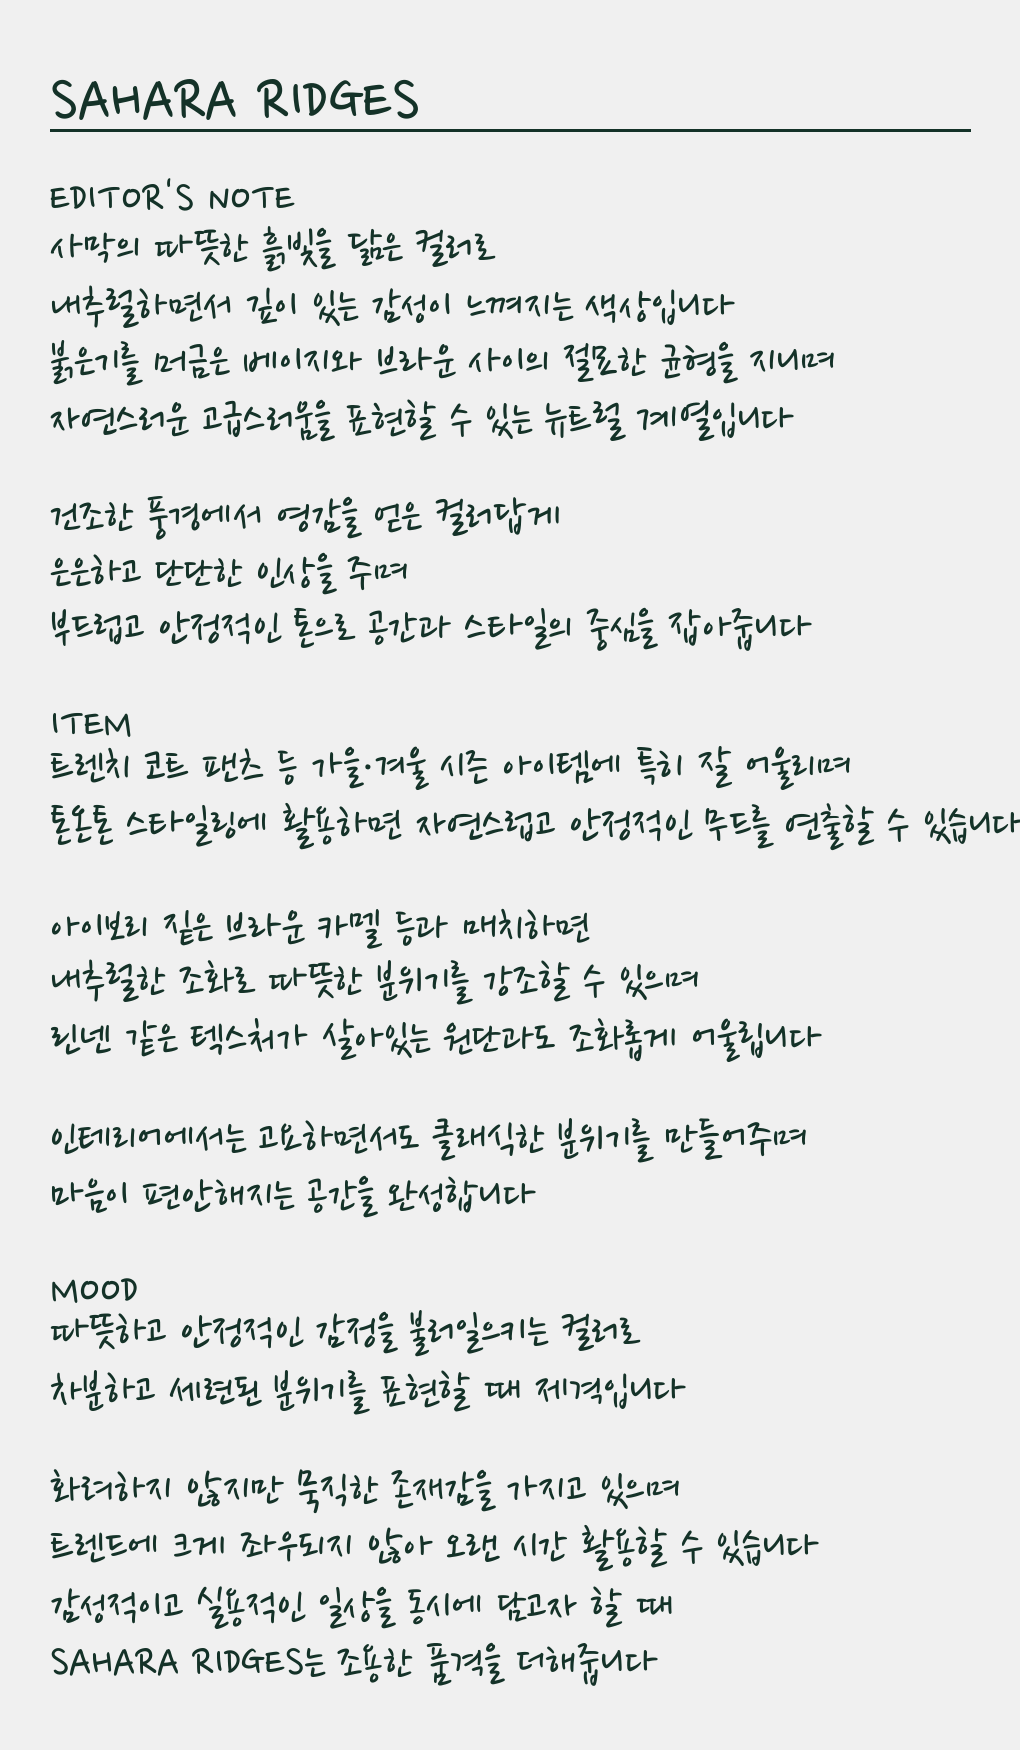 SAHARA RIDGES
EDITOR'S NOTE
사막의 따뜻한 흙빛을 닮은 컬러로
내추럴하면서 깊이 있는 감성이 느껴지는 색상입니다
붉은기를 머금은 베이지와 브라운 사이의 절묘한 균형을 지니며
자연스러운 고급스러움을 표현할 수 있는 뉴트럴 계열입니다
건조한 풍경에서 영감을 얻은 컬러답게
은은하고 단단한 인상을 주며
부드럽고 안정적인 톤으로 공간과 스타일의 중심을 잡아줍니다
ITEM
트렌치 코트 팬츠 등 가을·겨울 시즌 아이템에 특히 잘 어울리며
톤온톤 스타일링에 활용하면 자연스럽고 안정적인 무드를 연출할 수 있습니다
아이보리 짙은 브라운 카멜 등과 매치하면
내추럴한 조화로 따뜻한 분위기를 강조할 수 있으며
린넨 같은 텍스처가 살아있는 원단과도 조화롭게 어울립니다
인테리어에서는 고요하면서도 클래식한 분위기를 만들어주며
마음이 편안해지는 공간을 완성합니다
MOOD
따뜻하고 안정적인 감정을 불러일으키는 컬러로
차분하고 세련된 분위기를 표현할 때 제격입니다
화려하지 않지만 묵직한 존재감을 가지고 있으며
트렌드에 크게 좌우되지 않아 오랜 시간 활용할 수 있습니다
감성적이고 실용적인 일상을 동시에 담고자 할 때
SAHARA RIDGES는 조용한 품격을 더해줍니다